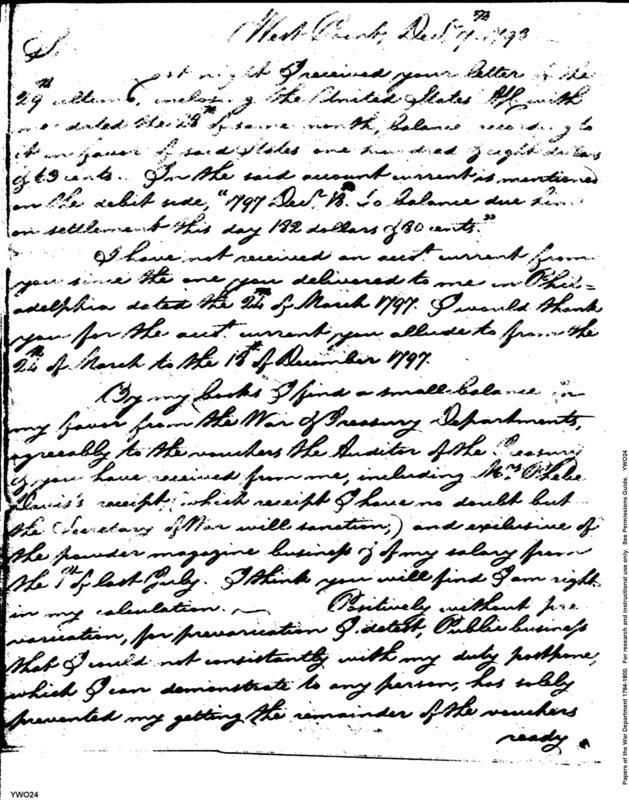 West Point, Decr. 7th. 1798
S
Last night I received your letter of the
29th ultimo, inclosing the United States A/C with
me dated the 28th of same month, balance according to
it in favor of said States one hundred & eight dollars
& 63 cents. In the said account current is mentioned
on the debit side, "1797 Decr. 18th. to balance due him
on settlement this day 132 dollars & 80 cents."
I have not received an acct. current from
you since the one you delivered to me in Phil=
adelphia dated the 24th of March 1797. I would thank
you for the acct. current you allude to from the
24th of March to the 18th of December 1797.
By my books I find a small balance in
my favor from the War & Treasury Departments,
agreeably to the vouchers the Auditor of the Treasury
& you have received from me, including Mrs. Phebe
Davis's receipt, (which receipt I have no doubt but
the Secretary of War will sanction,) and exclusive of
the powder magazine business & of my salary from
the 1st of last July. I think you will find I am right
in my calculation. Positively without pre
varication, for prevarication I detest, Public business
that I could not consistantly with my duty postpone,
which I can demonstrate to any person, has solely
prevented my getting the remainder of the vouchers
ready.
Papers of the War Department 1784-1800. For research and instructional use only. See Permissions Guide. YWO24
YWO24